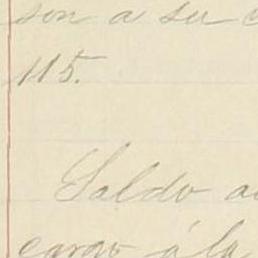 son a su c
115.
Saldo a
cargo á la